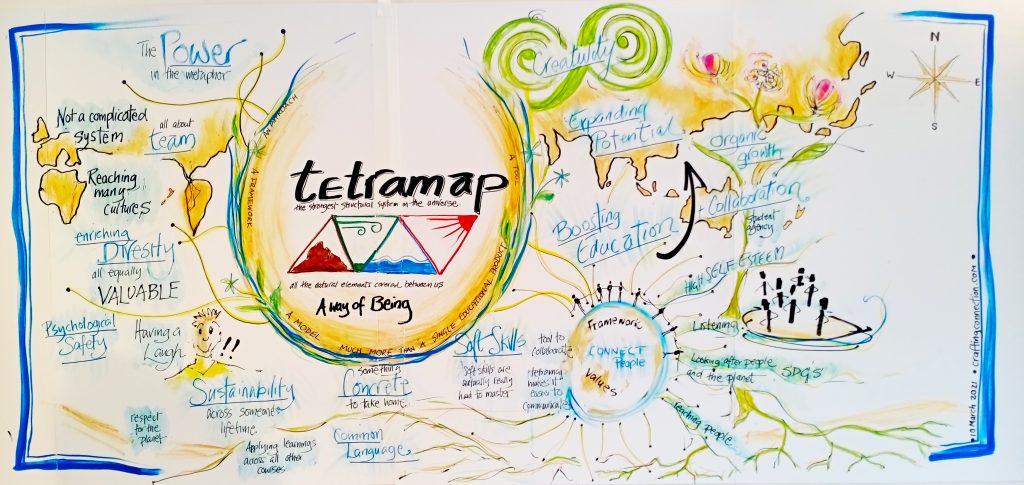 The Power
in the metaphor
Not a complicated
system
all about
team
Reaching
many
cultures
enriching
Diversity
all equally
VALUABLE
Psychological
Safety
Having a
Laugh
!!
Sustainability
across someone's
lifetime
respect
for the
planet
Applying learnings
across all other
courses
AN APPROACH
A FRAMEWORK
A MODEL
MUCH MORE THAN A SINGLE EDUCATIONAL PRODUCT
A TOOL
tetramap
the strongest structural system in the universe.
all the natural elements covered between us
A way of Being
something
Concrete
to take home
Common
Language
Soft Skills
Soft skills are
actually really
hard to master
tool to
collaborate
tetramap
makes it
easier to
communicate
Framework
CONNECT
PEOPLE
Values
Creativity
Expanding
Potential
Boosting
Education
Organic
growth
+ Collaboration
student
agency
HIGH SELF ESTEEM
Listening
Looking after people
and the planet
SDGS
Reaching people
N
W
E
S
10 March 2021 • craftingconnection.com